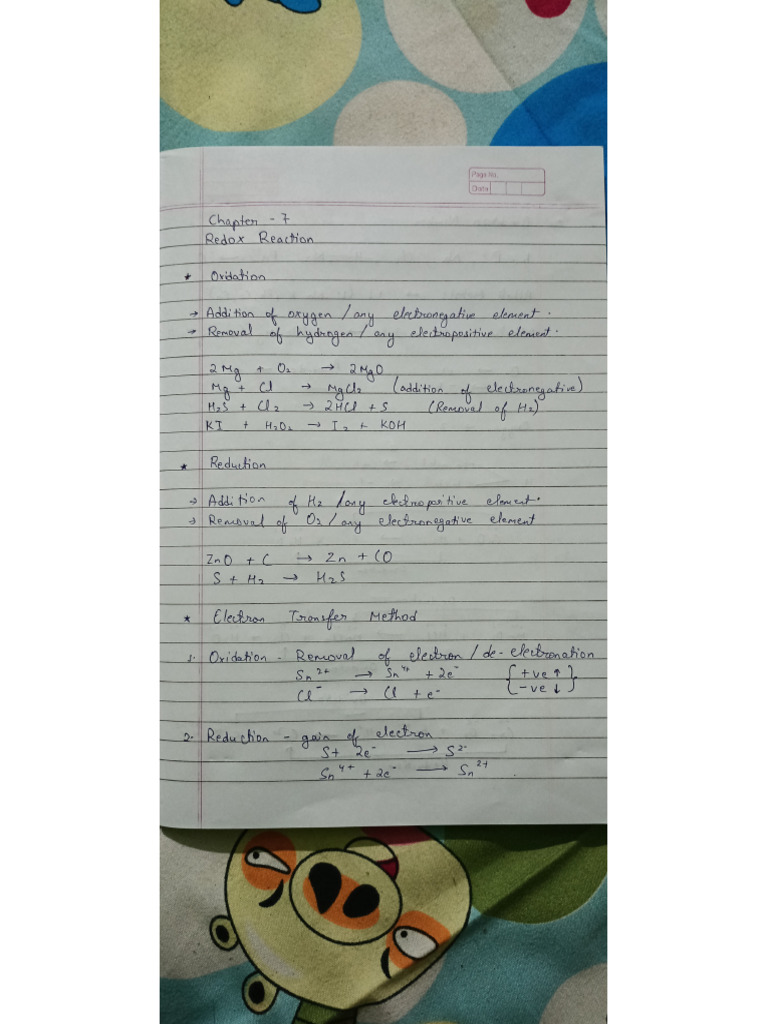 Page No.
Date
Chapter - 7
Redox Reaction
* Oxidation
→ Addition of oxygen / any electronegative element.
→ Removal of hydrogen / any electropositive element.
2Mg + O₂ → 2MgO
Mg + Cl → MgCl₂ (addition of electronegative)
H₂S + Cl₂ → 2HCl + S (Removal of H₂)
KI + H₂O₂ → I₂ + KOH
* Reduction
→ Addition of H₂ / any electropositive element.
→ Removal of O₂ / any electronegative element
ZnO + C → Zn + CO
S + H₂ → H₂S
* Electron Transfer Method
1. Oxidation - Removal of electron / de-electronation
Sn²⁺ → Sn⁴⁺ + 2e⁻ {+ve ↑
Cl⁻ → Cl + e⁻ -ve ↓}
2. Reduction - gain of electron
S + 2e⁻ → S²⁻
Sn⁴⁺ + 2e⁻ → Sn²⁺